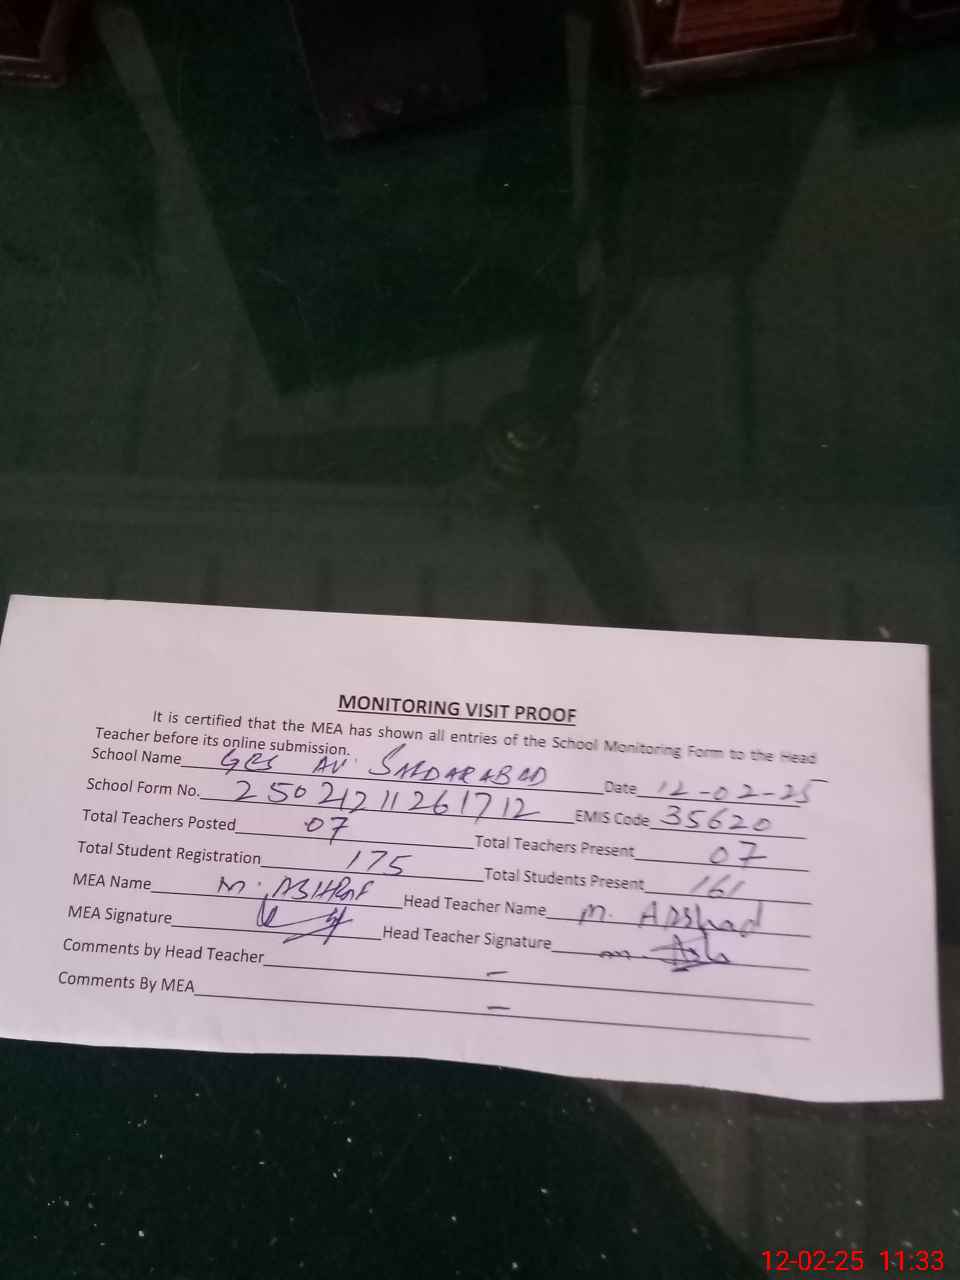 MONITORING VISIT PROOF
It is certified that the MEA has shown all entries of the School Monitoring Form to the Head
Teacher before its online submission.
School Name AV. SARDARABAD Date 12-02-25
School Form No. 25021211261712 EMIS Code 35620
Total Teachers Posted 07 Total Teachers Present 07
Total Student Registration 175 Total Students Present 161
MEA Name M. ASHRAF Head Teacher Name M. Arshad
MEA Signature Head Teacher Signature
Comments by Head Teacher –
Comments By MEA –
12-02-25 11:33